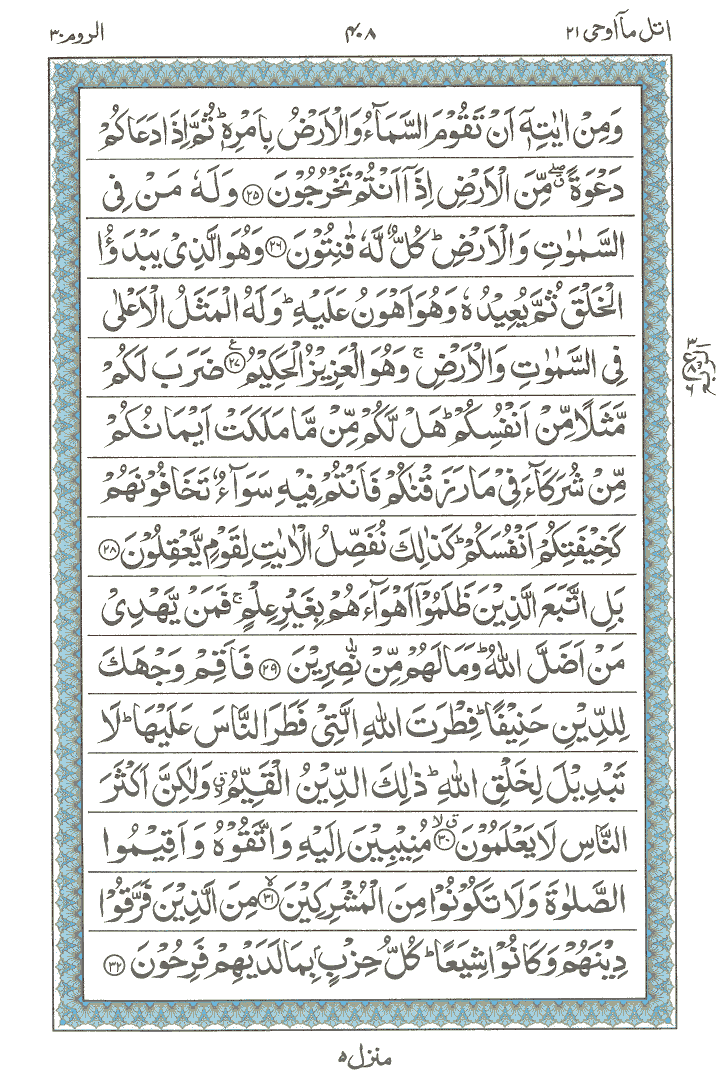 اتل مآ اوحی ۲۱
۴۰۸
الروم ۳۰
وَمِنْ اٰيٰتِهٖٓ اَنْ تَقُوْمَ السَّمَآءُ وَالْاَرْضُ بِاَمْرِهٖ ؕ ثُمَّ اِذَا دَعَاكُمْ
دَعْوَةً ۖۗ مِّنَ الْاَرْضِ اِذَاۤ اَنْتُمْ تَخْرُجُوْنَ ۝۲۵ وَلَهٗ مَنْ فِى
السَّمٰوٰتِ وَالْاَرْضِ ؕ كُلٌّ لَّهٗ قٰنِتُوْنَ ۝۲۶ وَهُوَ الَّذِىْ يَبْدَؤُا
الْخَلْقَ ثُمَّ يُعِيْدُهٗ وَهُوَ اَهْوَنُ عَلَيْهِ ؕ وَلَهُ الْمَثَلُ الْاَعْلٰى
فِى السَّمٰوٰتِ وَالْاَرْضِ ۚ وَهُوَ الْعَزِيْزُ الْحَكِيْمُ ۝۲۷ ع ضَرَبَ لَكُمْ
مَّثَلًا مِّنْ اَنْفُسِكُمْ ؕ هَلْ لَّكُمْ مِّنْ مَّا مَلَكَتْ اَيْمَانُكُمْ
مِّنْ شُرَكَآءَ فِىْ مَا رَزَقْنٰكُمْ فَاَنْتُمْ فِيْهِ سَوَآءٌ تَخَافُوْنَهُمْ
كَخِيْفَتِكُمْ اَنْفُسَكُمْ ؕ كَذٰلِكَ نُفَصِّلُ الْاٰيٰتِ لِقَوْمٍ يَّعْقِلُوْنَ ۝۲۸
بَلِ اتَّبَعَ الَّذِيْنَ ظَلَمُوْۤا اَهْوَآءَهُمْ بِغَيْرِ عِلْمٍ ۚ فَمَنْ يَّهْدِىْ
مَنْ اَضَلَّ اللّٰهُ ؕ وَمَا لَهُمْ مِّنْ نّٰصِرِيْنَ ۝۲۹ فَاَقِمْ وَجْهَكَ
لِلدِّيْنِ حَنِيْفًا ؕ فِطْرَتَ اللّٰهِ الَّتِىْ فَطَرَ النَّاسَ عَلَيْهَا ؕ لَا
تَبْدِيْلَ لِخَلْقِ اللّٰهِ ؕ ذٰلِكَ الدِّيْنُ الْقَيِّمُ ۙۗ وَلٰكِنَّ اَكْثَرَ
النَّاسِ لَا يَعْلَمُوْنَ ۝۳۰ ق لا مُنِيْبِيْنَ اِلَيْهِ وَاتَّقُوْهُ وَاَقِيْمُوا
الصَّلٰوةَ وَلَا تَكُوْنُوْا مِنَ الْمُشْرِكِيْنَ ۝۳۱ لا مِنَ الَّذِيْنَ فَرَّقُوْا
دِيْنَهُمْ وَكَانُوْا شِيَعًا ؕ كُلُّ حِزْبٍۭ بِمَا لَدَيْهِمْ فَرِحُوْنَ ۝۳۲
منزل ۵